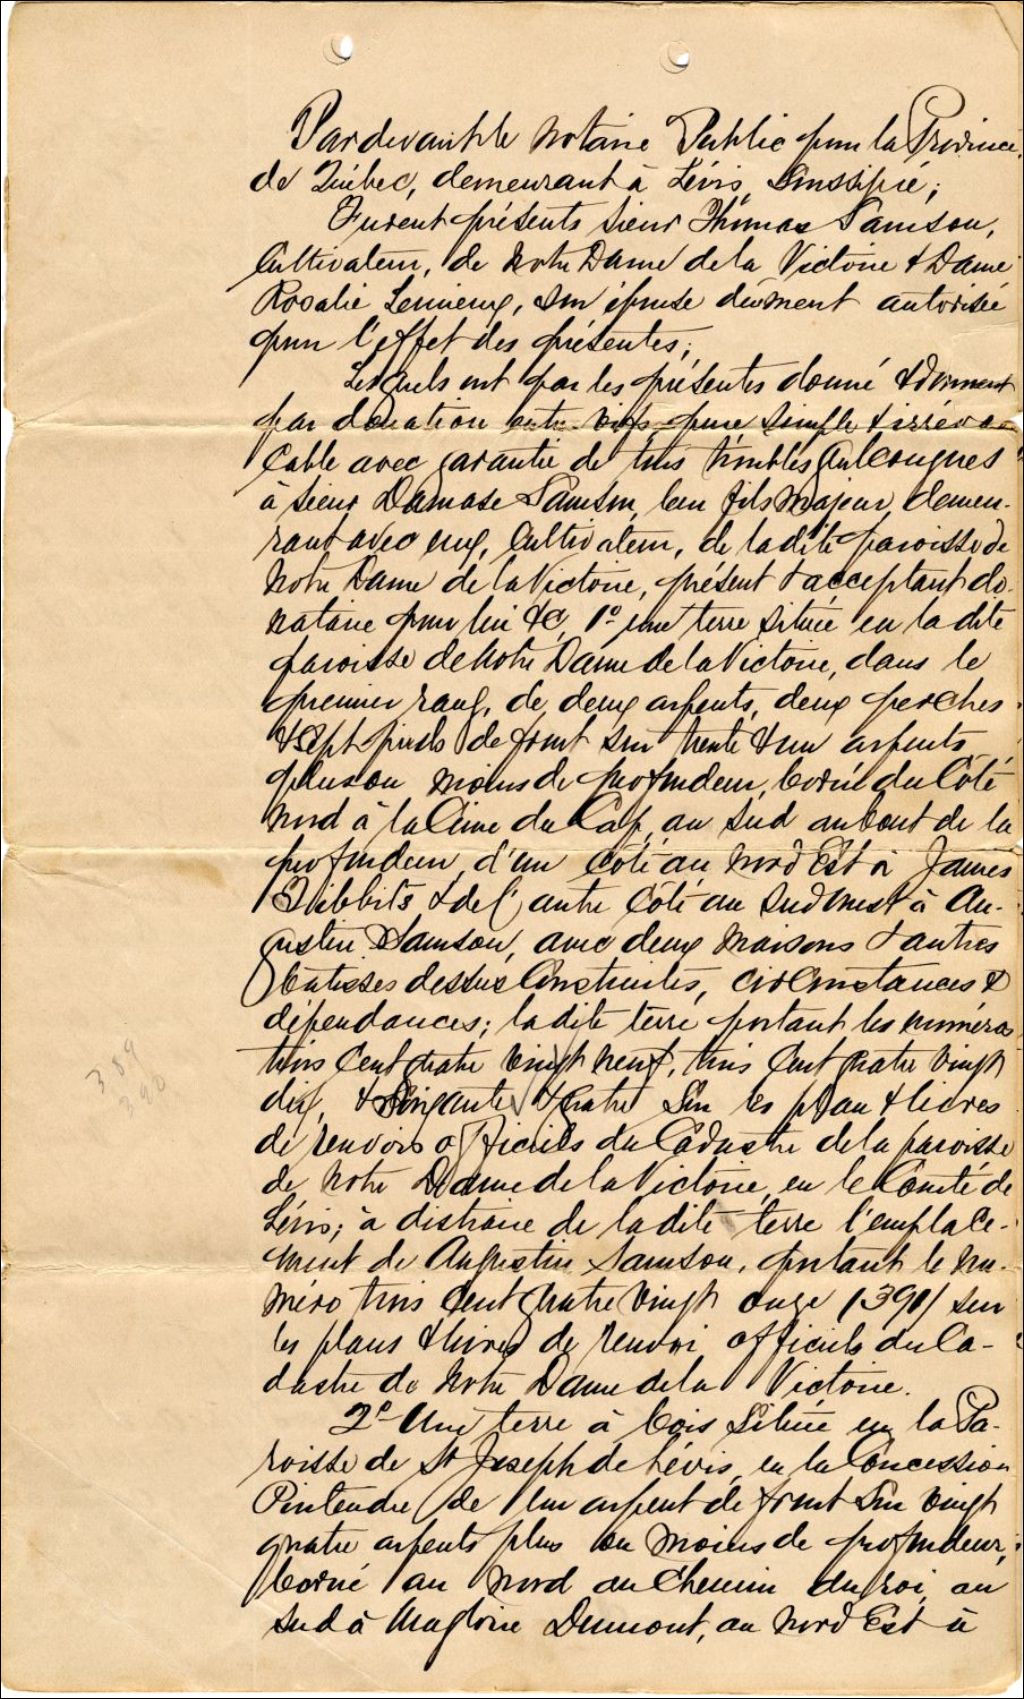 Pardevant le Notaire Public pour la Province
de Québec, demeurant à Lévis, Soussigné;
Furent présents Sieur Thomas Samson,
Cultivateur, de Notre Dame de la Victoire & Dame
Rosalie Lemieux, son épouse dûment autorisée
pour l'effet des présentes;
Lesquels ont par les présentes donné & donnent
par donation entre vifs, pure simple & irrévo-
cable avec garantie de tous troubles quelconques
à Sieur Damase Samson, leur fils majeur, demeu-
rant avec eux, Cultivateur, de ladite paroisse de
Notre Dame de la Victoire, présent & acceptant do-
nataire pour lui &c, 1º une terre située en la dite
paroisse de Notre Dame de la Victoire, dans le
premier rang, de deux arpents, deux perches
& sept pieds de front sur trente & un arpents
plus ou moins de profondeur, borné du Côté
Nord à la Cime du Cap, au Sud au bout de la
profondeur, d'un côté au Nord Est à James
Tibbits & de l'autre Côté au Sud Ouest à Au-
gustin Samson, avec deux maisons & autres
bâtisses dessus Construites, circonstances &
dépendances; la dite terre portant les numéros
trois Cent quatre vingt neuf, trois Cent quatre vingt
dix, & Cinquante & quatre Sur les plan & livres
de renvois officiels du Cadastre de la paroisse
de Notre Dame de la Victoire, en le Comté de
Lévis; à distraire de ladite terre l'emplace-
ment de Augustin Samson, portant le nu-
méro trois Cent quatre vingt onze (391) sur
les plans & livres de renvoi officiels du Ca-
dastre de Notre Dame de la Victoire.
2º Une terre à bois Située en la Pa-
roisse de St Joseph de Lévis, en la Concession
Pintendre, de un arpent de front Sur vingt
quatre arpents plus ou moins de profondeur,
borné au Nord au Chemin du roi, au
Sud à Magloire Dumont, au Nord Est à
389
390